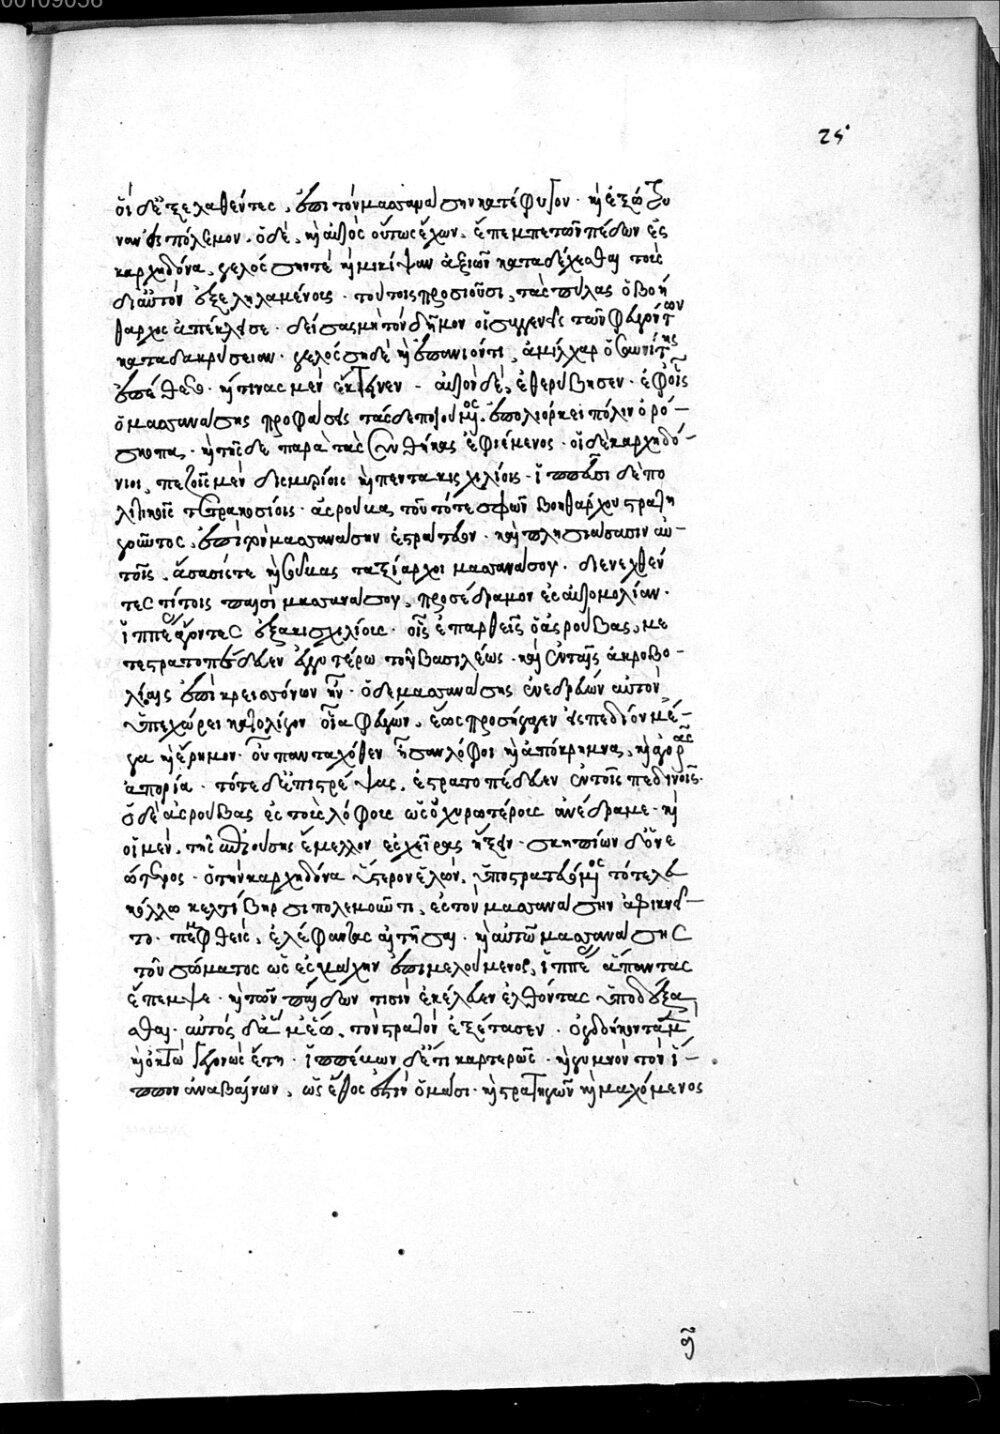 00109056
25
οἱ δὲ ἐξελαθέντες, ἐπὶ τὸν μασσανάσσην κατέφυγον· καὶ ἐξώτρυ
νον ἐς πόλεμον. ὁ δὲ, καὶ αὐτὸς οὕτως ἔχων, ἔπεμπε τῶν παίδων ἐς
καρχηδόνα, γολόσσην τὲ καὶ μικίψαν ἀξιῶν καταδέχεσθαι τοὺς
δι' αὐτὸν ἐξεληλαμένους· τούτοις προσιοῦσι, τὰς πύλας ὁ βοή
θαρχος ἀπέκλεισε· δείσας μὴ τὸν δῆμον οἱ συγγενεῖς τῶν φευγόντων
καταδακρύσειαν· γολόσσῃ δὲ καὶ ἐπανιόντι, ἀμίλχαρ ὁ σαυνίτης
ἐπέθετο· καί τινας μὲν ἔκτεινεν· αὐτὸν δὲ, ἐθορύβησεν· ἐφ' οἷς
ὁ μασσανάσσης πρόφασιν τάσδε ποιούμενος, ἐπολιόρκει πόλιν ὁρό-
σκοπα· καὶ τῆσδε παρὰ τὰς συνθήκας ἐφιέμενος· οἱ δὲ καρχηδό-
νιοι, πεζοῖς μὲν δισμυρίοις καὶ πεντακισχιλίοις· ἱππεῦσι δὲ πο
λιτικοῖς τετρακοσίοις· ἀσρούβα, τοῦ τότε σφῶν βοηθάρχου στρατη
γοῦντος, ἐπὶ τὸν μασσανάσσην ἐστράτευον· καὶ πλησιάσασιν αὐ-
τοῖς, ἄσασίς τε καὶ σούβας ταξίαρχοι μασσανάσσου· διενεχθέν
τες τι τοῖς παισὶ μασσανάσσου, προσέδραμον ἐς αὐτομολίαν·
ἱππέας ἄγοντες ἑξακισχιλίους· οἷς ἐπαρθεὶς ὁ ἀσρούβας, με
τεστρατοπέδευεν ἐγγυτέρω τοῦ βασιλέως· καὶ ἐν ταῖς ἀκροβο-
λίαις ἐπὶ κρεισσόνων ἦν· ὁ δὲ μασσανάσσης ἐνεδρεύων αὐτὸν,
ὑπεχώρει κατ' ὀλίγον οἷα φεύγων· ἕως προσήγαγεν ἐς πεδίον μέ-
γα καὶ ἔρημον· οὗ πανταχόθεν ἦσαν λόφοι καὶ ἀπόκρημνα, καὶ ἀγορᾶς
ἀπορία· τότε δὲ ἐπιστρέψας, ἐστρατοπέδευεν ἐν τοῖς πεδινοῖς·
ὁ δὲ ἀσρούβας ἐς τοὺς λόφους ὡς ὀχυρωτέρους ἀνέδραμε· καὶ
οἱ μὲν, τῆς ἐπιούσης ἔμελλον ἐς χεῖρας ἥξειν· σκηπίων δὲ ὁ νε
ώτερος· ὁ τὴν καρχηδόνα ὕστερον ἑλών, ὑποστρατευόμενος τότε λευ
κόλλῳ κελτίβηρσι πολεμοῦντι, ἐς τὸν μασσανάσσην ἀφικνεῖ-
το· πεμφθεὶς, ἐλέφαντας αἰτῆσαι· καὶ αὐτῷ μασσανάσσης
τοῦ σώματος ὡς ἐς μάχην ἐπιμελούμενος, ἱππέας ἀπαντᾶς
ἔπεμψε· καὶ τῶν παίδων τισὶν ἐκέλευεν ἐλθόντας ὑποδέξα
σθαι· αὐτὸς δὲ ἅμα ἕῳ, τὸν στρατὸν ἐξέτασσεν· ὀγδοήκοντα μὲν
καὶ ὀκτὼ γεγονὼς ἔτη· ἱππεύων δὲ ἔτι καρτερῶς· καὶ γυμνὸν τὸν ἵ-
ππον ἀναβαίνων, ὡς ἔθος ἐστὶν νομάσι· καὶ στρατηγῶν καὶ μαχόμενος